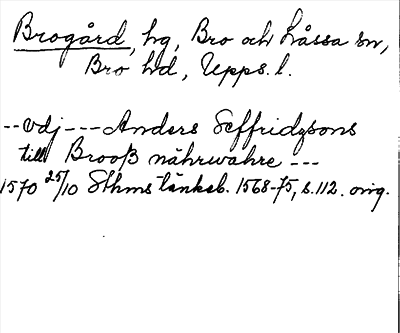 Brogård, hg, Bro och Låssa sn,
Bro hd, Upps. l.
-- vdj --- Anders Seffridzsons
till Brooß nährwahre ---
1570 25/10 Sthms tänkeb. 1568-75, s. 112. orig.